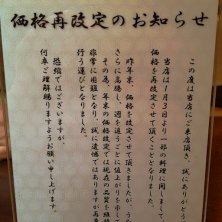 価格再改定のお知らせ
この度は当店にご来店頂き、誠にありがと
当店は１月３日より一部の料理に関しまして、
価格を再改定させて頂くこととなりました。
昨年末、価格を改定させて頂きましたが、う
さらに高騰し、週を追うごとに値上がりを
その為、年末の価格改定では現在の品質を維
非常に困難となり、誠に遺憾ではありますが再
行う運びとなりました。
恐縮ではございますが、
何卒ご理解賜りますようお願い申し上げます。